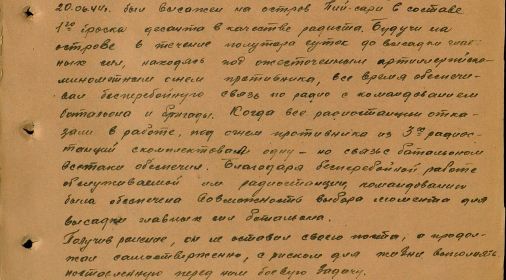 20.06.44г. был высажен на остров Пий-сари в составе
1го броска десанта в качестве радиста. Будучи на
острове в течение полутора суток до высадки глав-
ных сил, находясь под ожесточенным артиллерийско-
минометным огнем противника, все время обеспечи-
вал бесперебойную связь по радио с командованием
батальона и бригады. Когда все радиостанции отка-
зали в работе, под огнем противника из 3х радиос-
танций скомплектовал одну – но связь с батальоном
обеспечил. Благодаря бесперебойной работе
обслуживаемой им радиостанции, командованию
была обеспечена возможность выбора момента для
высадки главных сил батальона.
Получив ранение, он не оставил своего поста, а продол-
жал самоотверженно, с риском для жизни выполнять
поставленную перед ним боевую задачу.